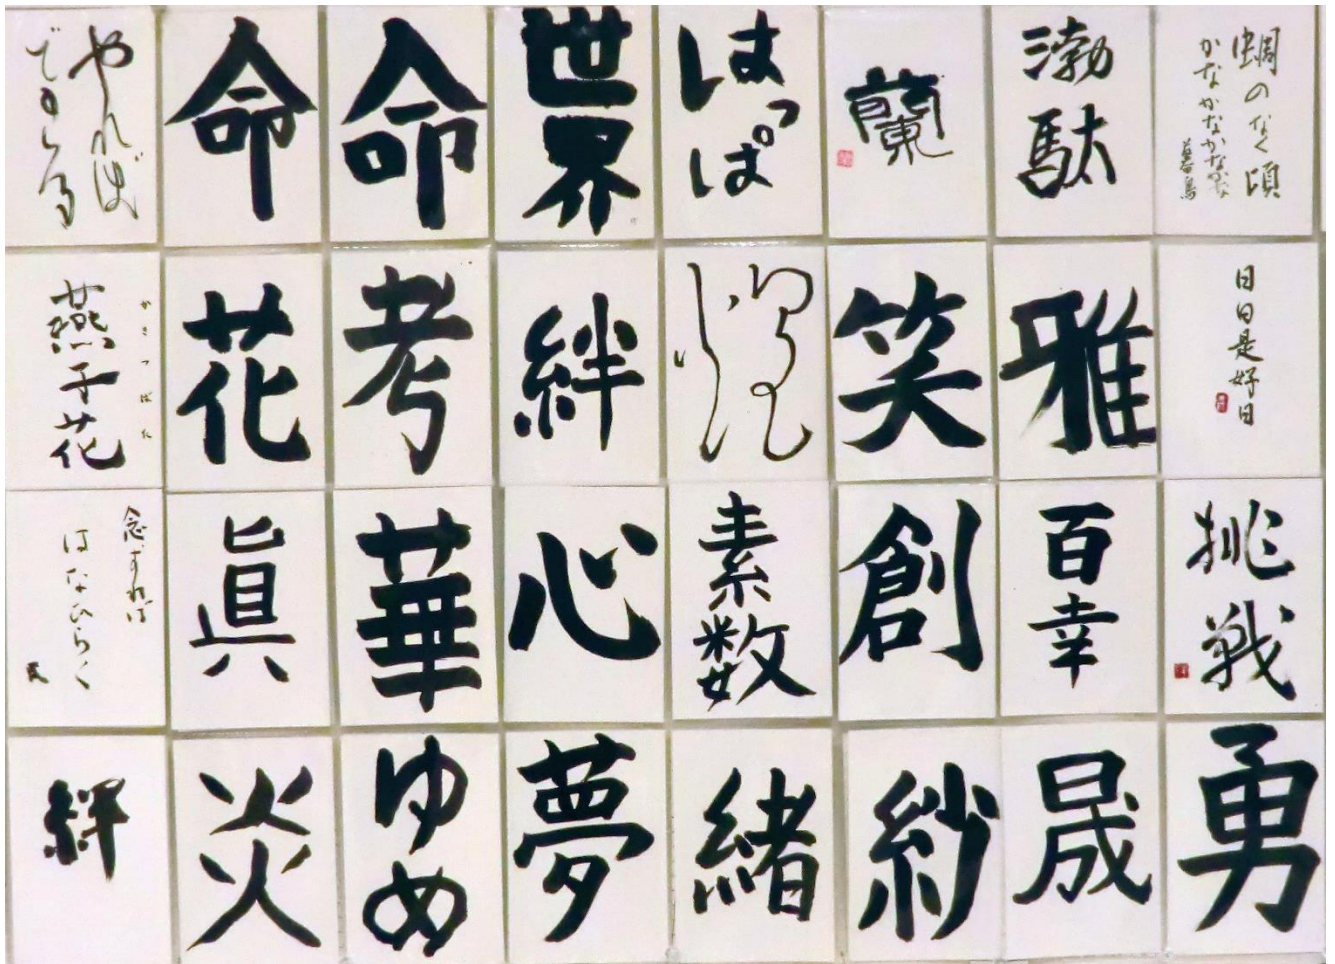 やれば
できる
命
命
世界
はっぱ
蘭
渤駄
蜩のなく頃
かなかなかなかな
暮鳥
かきつばた
燕子花
花
考
絆
笑
雅
日日是好日
念ずれば
はなひらく
眞
華
心
素数
創
百幸
挑戦
絆
炎
ゆめ
夢
緒
紗
晟
勇